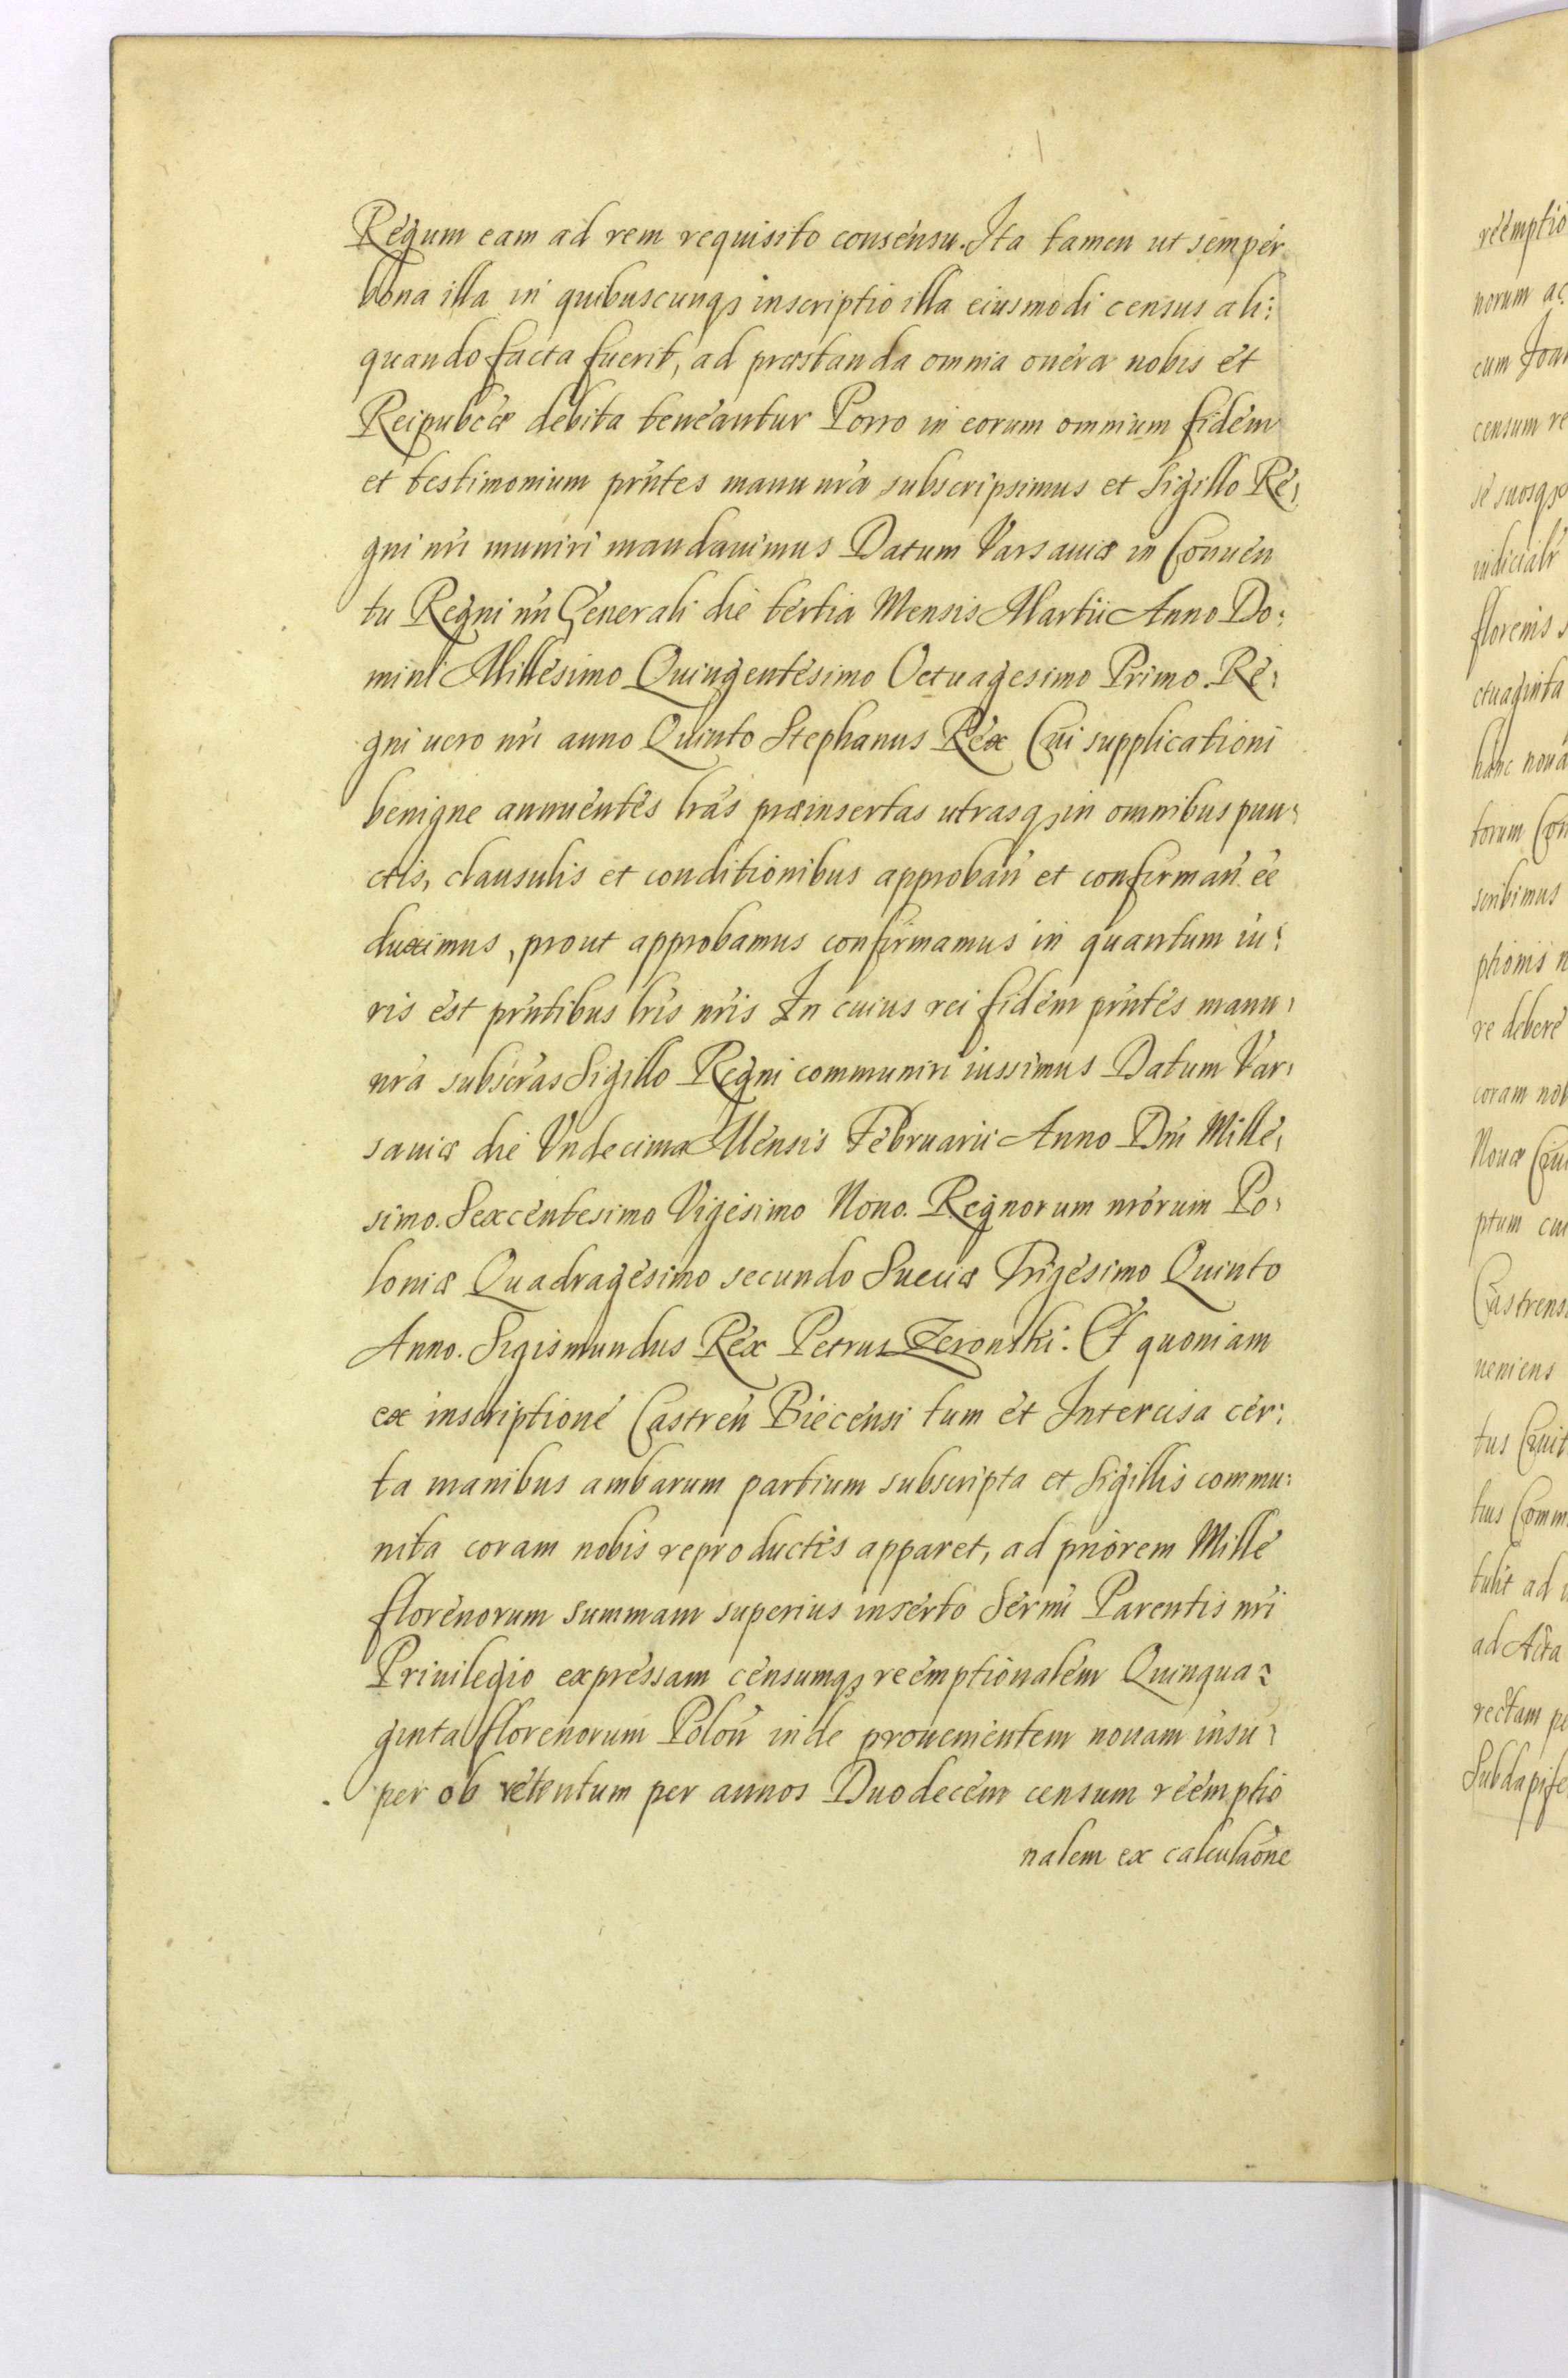 Regum eam ad rem requisito consensu. Ita tamen ut semper
bona illa in quibuscunqȝ inscriptio illa eiusmodi census ali:
quando facta fuerit, ad præstanda omnia onera nobis et
Reipubcæ debita teneantur Porro in eorum omnium fidem
et testimonium prñtes manu nrã subscripsimus et Sigillo Re:
gni nri muniri mandauimus Datum Varsauiæ in Conuen
tu Regni nri Generali die tertia Mensis Martii Anno Do:
mini Millesimo Quingentesimo Octuagesimo Primo. Re:
gni uero nri anno Quinto Stephanus Rex Cui supplicationi
benigne annuentes lras præinsertas utrasqȝ in omnibus pun:
ctis, clausulis et conditionibus approban̄ et confirman̄ ee
duximus, prout approbamus confirmamus in quantum iu:
ris est prñtibus lris nris In cuius rei fidem prñtes manu
nrã subscras Sigillo Regni communiri iussimus Datum Var:
sauiæ die Vndecima Mensis Februarii Anno Dñi Mille:
simo. Sexcentesimo Vigesimo Nono. Regnorum nrorum Po:
loniæ Quadragesimo secundo Sueciæ Trigesimo Quinto
Anno. Sigismundus Rex Petrus Zeronski. Et quoniam
ex inscriptione Castren̄ Biecensi tum et Intercisa cer:
ta manibus ambarum partium subscripta et Sigillis commu:
nita coram nobis reproductis apparet, ad priorem Mille
florenorum summam superius inserto Sermi Parentis nri
Priuilegio expressam censumqȝ reemptionalem Quinqua:
ginta florenorum Polon̄ inde prouenientem nouam insu:
per ob retentum per annos Duodecem censum reemptio
nalem ex calculaone
reemptio
norum ac
cum Joan
censum re
se suosqȝ
iudicialr
florenis s
ctuaginta
hanc noua
torum Con
scribimus
ptionis n
re debere
coram nob
Nouæ Ciui
ptum cu
Castrens
ueniens
tus Ciuit
tius Comm
tulit ad
ad Acta
rectam pe
Subdapife